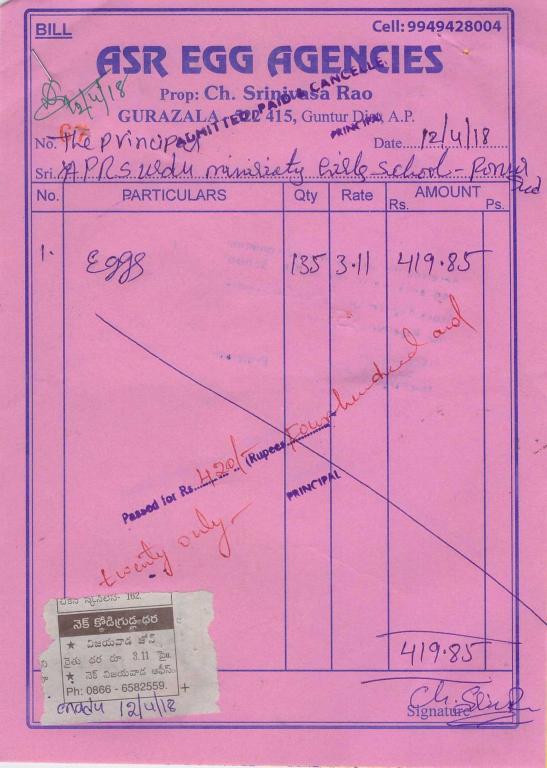 BILL
Cell: 9949428004
ASR EGG AGENCIES
Prop: Ch. Srinivasa Rao
GURAZALA - 522 415, Guntur Dist, A.P.
12/4/18
ADMITTED, PAID & CANCELLE
PRINCIPAL
No. The principal Date 12/4/18
Sri. APRS urdu school -
No. PARTICULARS Qty Rate AMOUNT
Rs. Ps.
1. Eggs 135 3.11 419.85
Passed for Rs. 420/- (Rupees Four hundred and
twenty only -
PRINCIPAL
419.85
Signature
నెక్ కోడిగ్రుడ్ల ధర
★ విజయవాడ జోన్
రైతు ధర రూ. 3.11 పై.
★ నెక్ విజయవాడ ఆఫీస్.
Ph: 0866 - 6582559. +
12/4/18